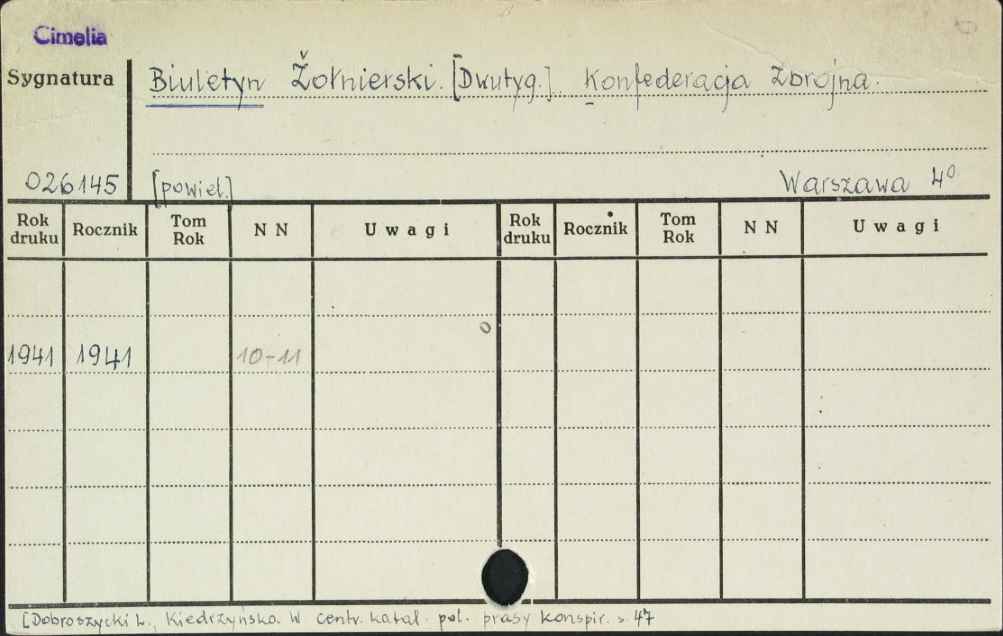 Cimelia
Sygnatura
Biuletyn Żołnierski. [Dwutyg.] Konfederacja Zbrojna.
026145
[powiel.]
Warszawa 4⁰
Rok druku Rocznik Tom Rok N N Uwagi Rok druku Rocznik Tom Rok N N Uwagi
1941 1941 10-11
[Dobroszycki L., Kiedrzyńska W. centr. katal. pol. prasy konspir. s. 47